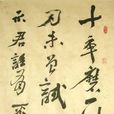 十年磨一
刃未曾試
示君誰有